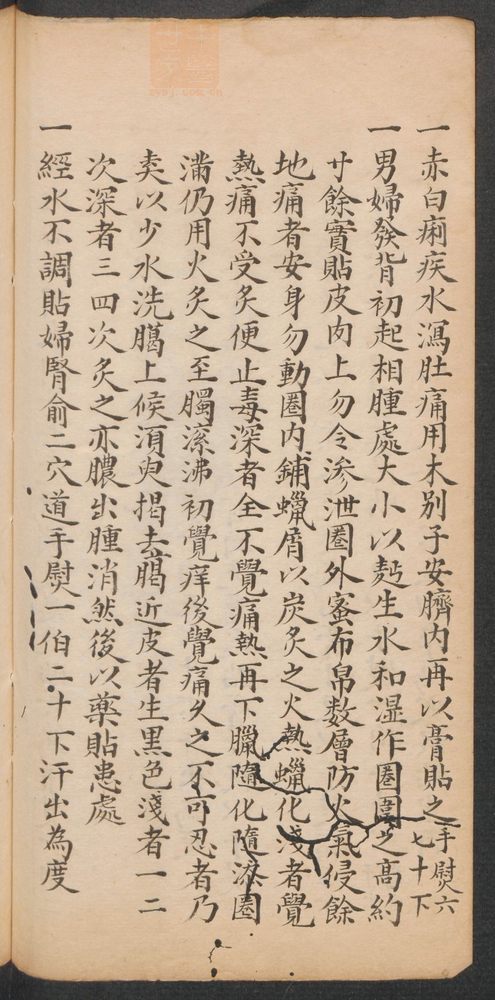 一赤白痢疾水瀉肚痛用木别子安臍內再以膏貼之手熨六七十下
一男婦發背初起相腫處大小以麪生水和湿作圈圍之高約
寸餘實貼皮肉上勿令滲泄圈外蜜布帛数層防火氣侵餘
地痛者安身勿動圈内鋪蠟屑以炭炙之火熱蠟化淺者覺
熱痛不受炙便止毒深者全不覺痛熱再下臘隨化隨添圈
滿仍用火炙之至臈滚沸初覺痒後覺痛久之不可忍者乃
去以少水洗臈上候須臾揭去臈近皮者生黑色淺者一二
次深者三四次炙之亦膿出腫消然後以藥貼患處
一經水不調貼婦腎俞二穴道手熨一伯二十下汗出為度